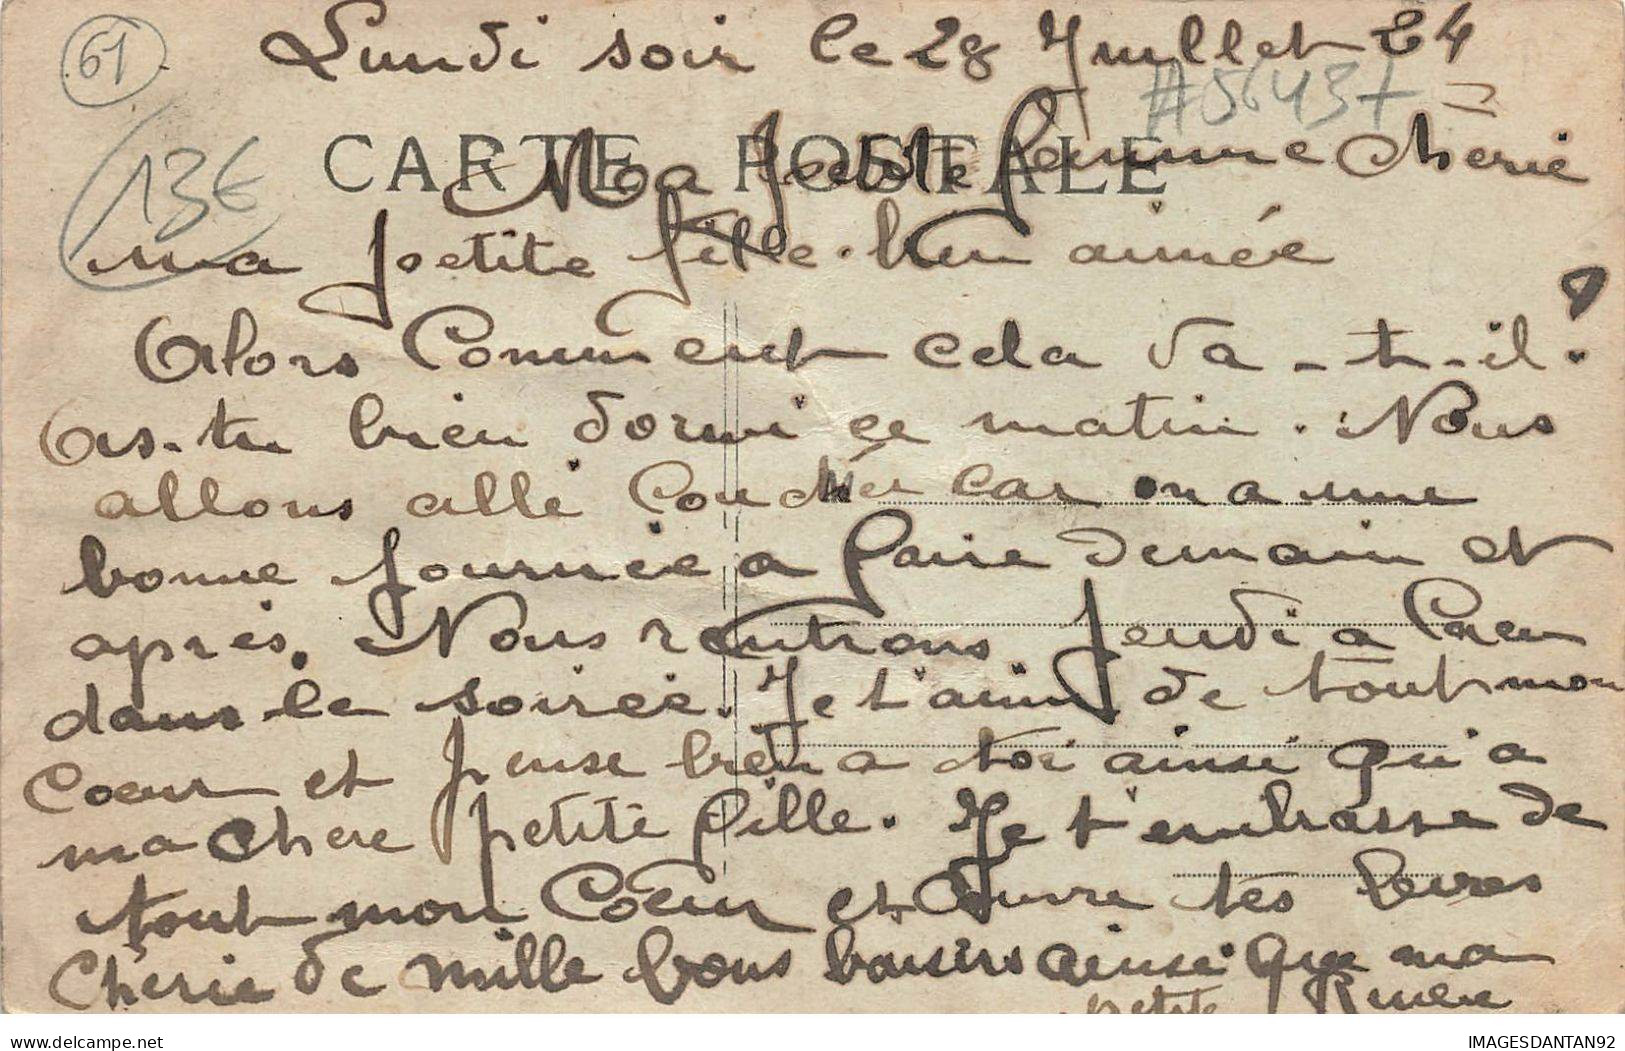 61
Lundi soir le 28 Juillet 24
#56437
13€
CARTE POSTALE
Ma Petite femme cherie
ma petite fille bien aimée
Alors Comment cela va-t-il ?
As-tu bien dormi ce matin. Nous
allons allé Coucher car on a une
bonne journée a faire demain et
après. Nous rentrons Jeudi a Caen
dans le soirée. Je t'aime de tout mon
Coeur et pense bien a toi ainsi qu'a
ma chere petite fille. Je t'embrasse de
tout mon Coeur et ouvre tes levres
Chérie de mille bons baisers ainsi que ma
petite
IMAGESDANTAN92